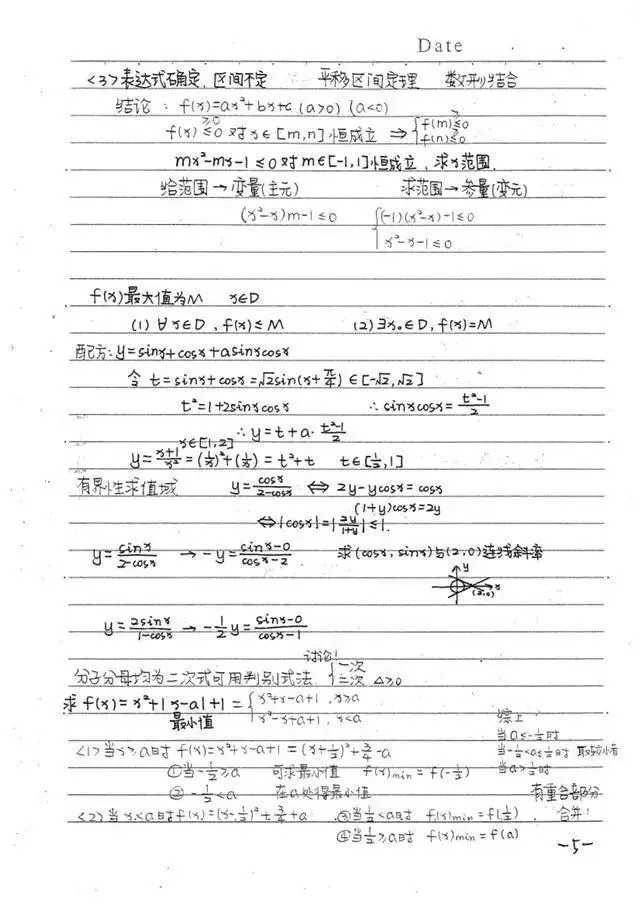 Date
<3>表达式确定,区间不定 平移区间定理 数形结合
结论: f(x)=ax²+bx+c (a>0) (a<0)
f(x) ≥0 ≤0 对x∈[m,n]恒成立 ⇒ {f(m)≤0
f(n)≤0
mx²-mx-1≤0对m∈[-1,1]恒成立,求x范围.
给范围→变量(主元) 求范围→参量(变元)
(x²-x)m-1≤0 {(-1)(x²-x)-1≤0
x²-x-1≤0
f(x)最大值为M x∈D
(1) ∀x∈D, f(x)≤M (2)∃x₀∈D, f(x)=M
配方: y=sinx+cosx+asinxcosx
令 t=sinx+cosx=√2sin(x+π/4)∈[-√2,√2]
t²=1+2sinxcosx ∴sinxcosx=(t²-1)/2
∴y=t+a·(t²-1)/2
x∈[1,2]
y=(x+1)/x²=(1/x)²+(1/x)=t²+t t∈[1/2,1]
有界性求值域 y=cosx/(2-cosx) ⇔ 2y-ycosx=cosx
(1+y)cosx=2y
⇔|cosx|=|2y/(1+y)|≤1.
y=sinx/(2-cosx) → -y=(sinx-0)/(cosx-2) 求(cosx,sinx)与(2,0)连线斜率
y
x
(2,0)
y=2sinx/(1-cosx) → -1/2y=(sinx-0)/(cosx-1)
讨论!
分子分母均为二次式可用判别式法. {一次
二次 Δ≥0
求f(x)=x²+|x-a|+1={x²+x-a+1, x≥a
最小值 x²-x+a+1, x<a
综上
当a≤-1/2时
<1>当x≥a时 f(x)=x²+x-a+1=(x+1/2)²+3/4-a 当-1/2<a≤1/2时 取较小者
①当-1/2≥a 可求最小值 f(x)min=f(-1/2) 当a>1/2时
② -1/2<a 在a处得最小值 有重合部分
<2>当x<a时f(x)=(x-1/2)²+3/4+a ③当1/2<a时 f(x)min=f(1/2), 合并!
④当1/2≥a时 f(x)min=f(a)
-5-